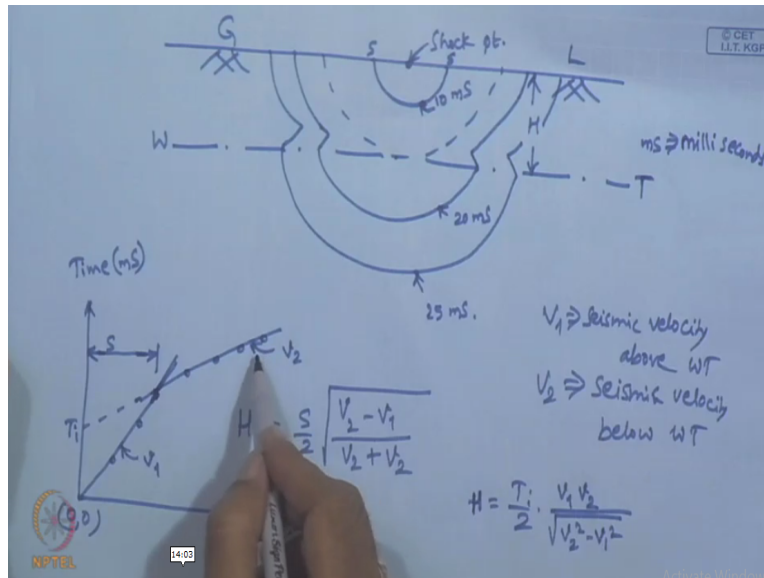 © CET
I.I.T. KGP
G
Shock pt.
L
S
S
10 ms
H
ms ⇒ milli seconds
W
T
20 ms
25 ms.
Time (ms)
S
V₂
Tᵢ
V₁
(0,0)
H = S/2 √((V₂ - V₁)/(V₂ + V₂))
V₁ ⇒ seismic velocity
above WT
V₂ ⇒ seismic velocity
below WT
H = Tᵢ/2 . V₁ V₂/√(V₂² - V₁²)
NPTEL
14:03